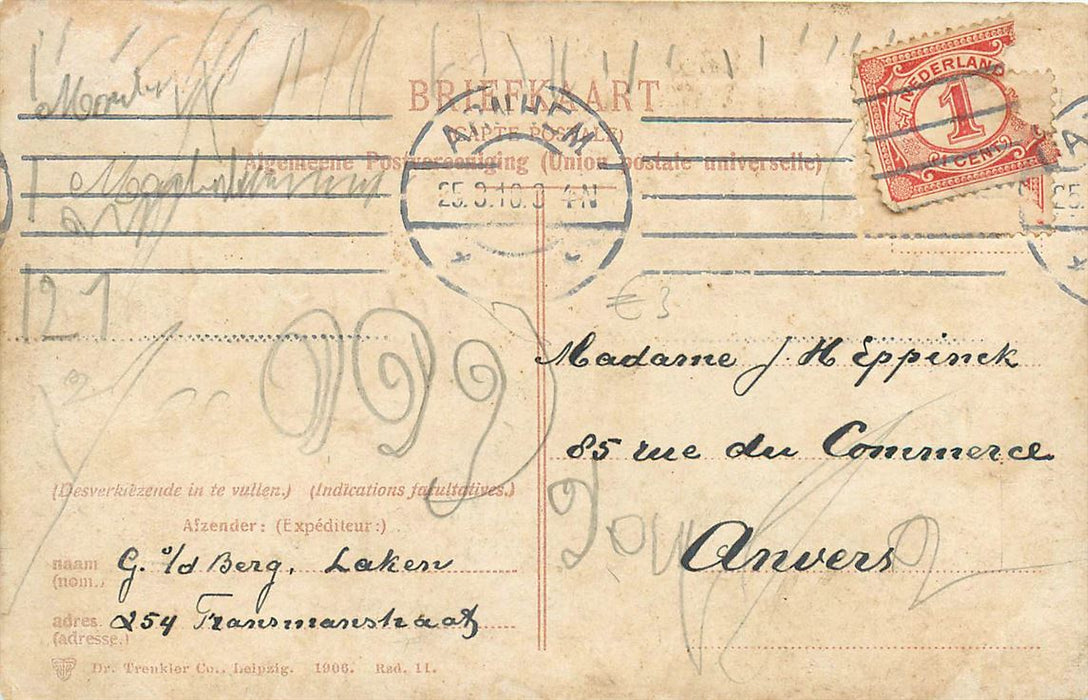 BRIEFKAART
(CARTE POSTALE)
Algemeene Postvereeniging (Union postale universelle)
NEDERLAND
1
(1 CENT)
ARNHEM
25.3.10.3 4-N
121
€3
Madame J H Eppinck
85 rue du Commerce
Anvers
(Desverkiezende in te vullen.) (Indications facultatives.)
Afzender: (Expéditeur:)
naam G. v/d Berg, Laken
(nom.)
adres. 254 Fransmanstraat
(adresse.)
Dr. Trenkler Co., Leipzig. 1906. Rsd. 11.
A
25.